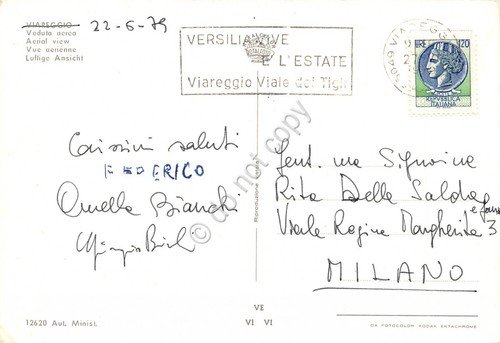 VIAREGGIO 22-6-79
Veduta aerea
Aerial view
Vue aérienne
Luftige Ansicht
VERSILIA VIVE
E L'ESTATE
Viareggio Viale dei Tigli
VIAREGG
LIRE 120
REPUBBLICA
ITALIANA
Carissimi saluti
FEDERICO
Ornella Bianchi
Gent.ma Signorina
Rita Della Salda
e fam
Viale Regina Margherita 3
MILANO
Riproduzione
do not copy
VE
VI VI
12620 Aut. Minist.
DA FOTOCOLOR KODAK EKTACHROME